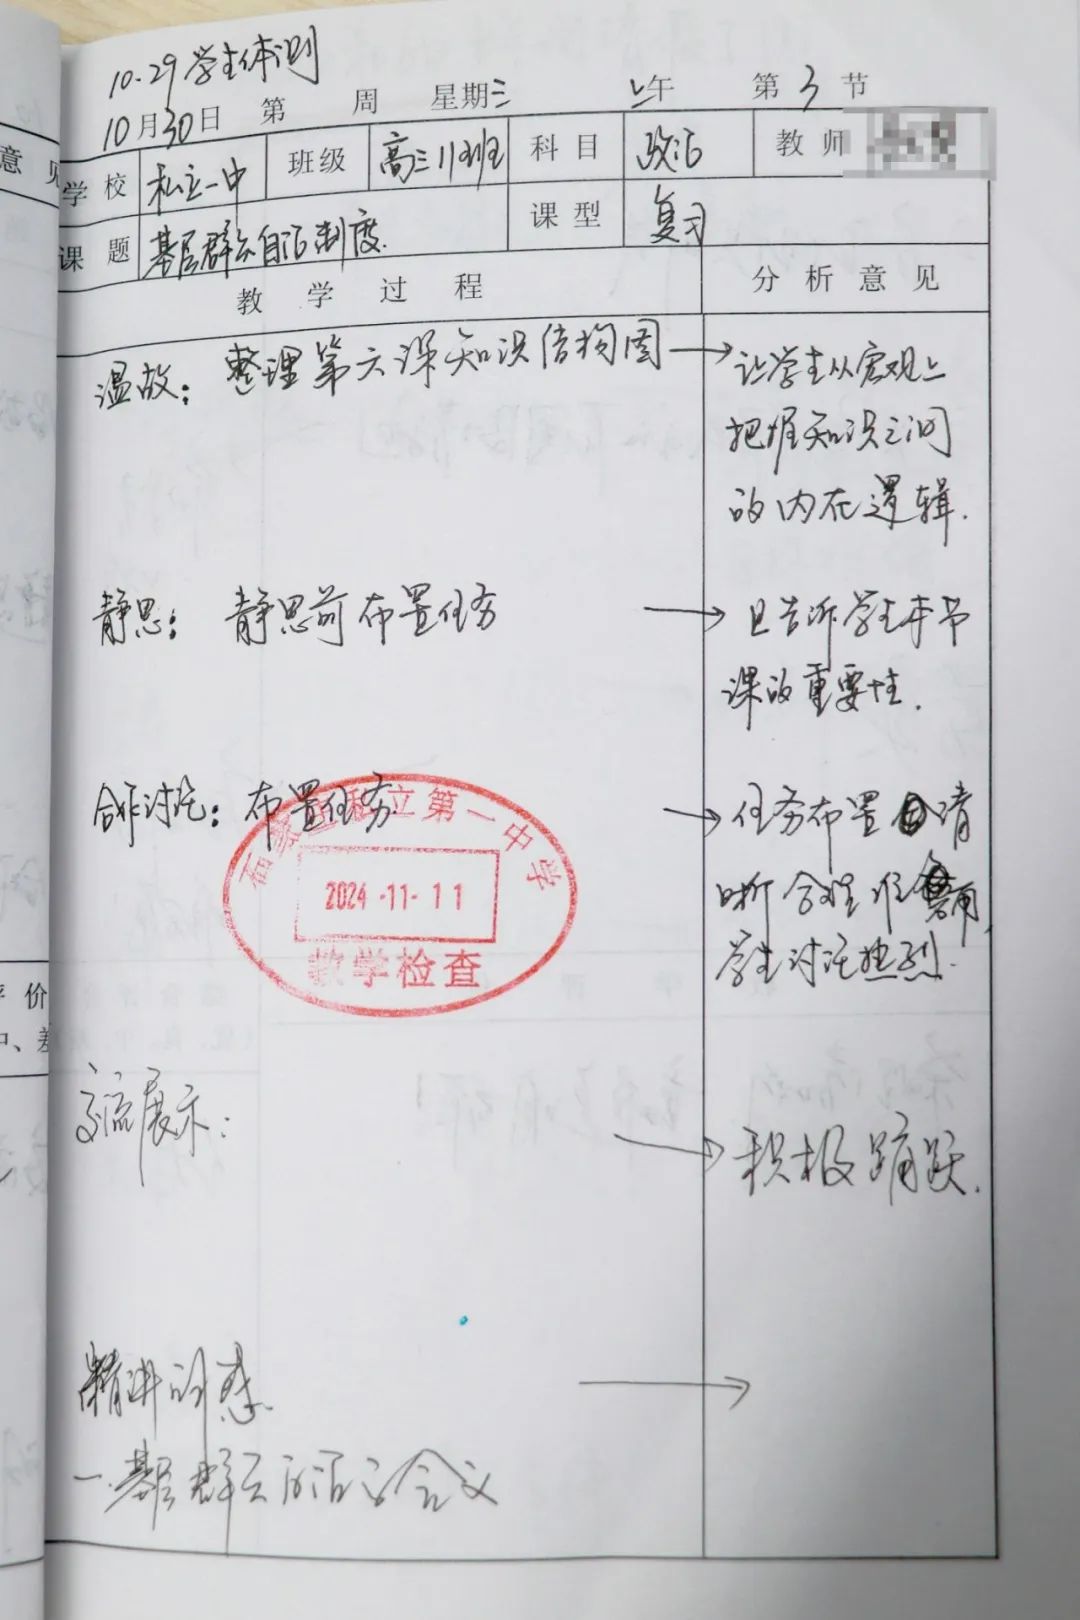 10.29学生体测
10月30日 第 周 星期三 上午 第3节
学校 私立一中 班级 高三11班 科目 政治 教师
课题 基层群众自治制度. 课型 复习
教学过程 分析意见
温故: 整理第六课知识结构图 → 让学生从宏观上
把握知识之间
的内在逻辑.
静思: 静思前布置任务 → 且告诉学生本节
课的重要性.
合作讨论: 布置任务 → 任务布置 清
晰
学生讨论热烈.
私立第一中学
2024-11-11
教学检查
交流展示: → 积极踊跃.
精讲 惑 →
一.基层群众自治 含义
意见
评价
中、差